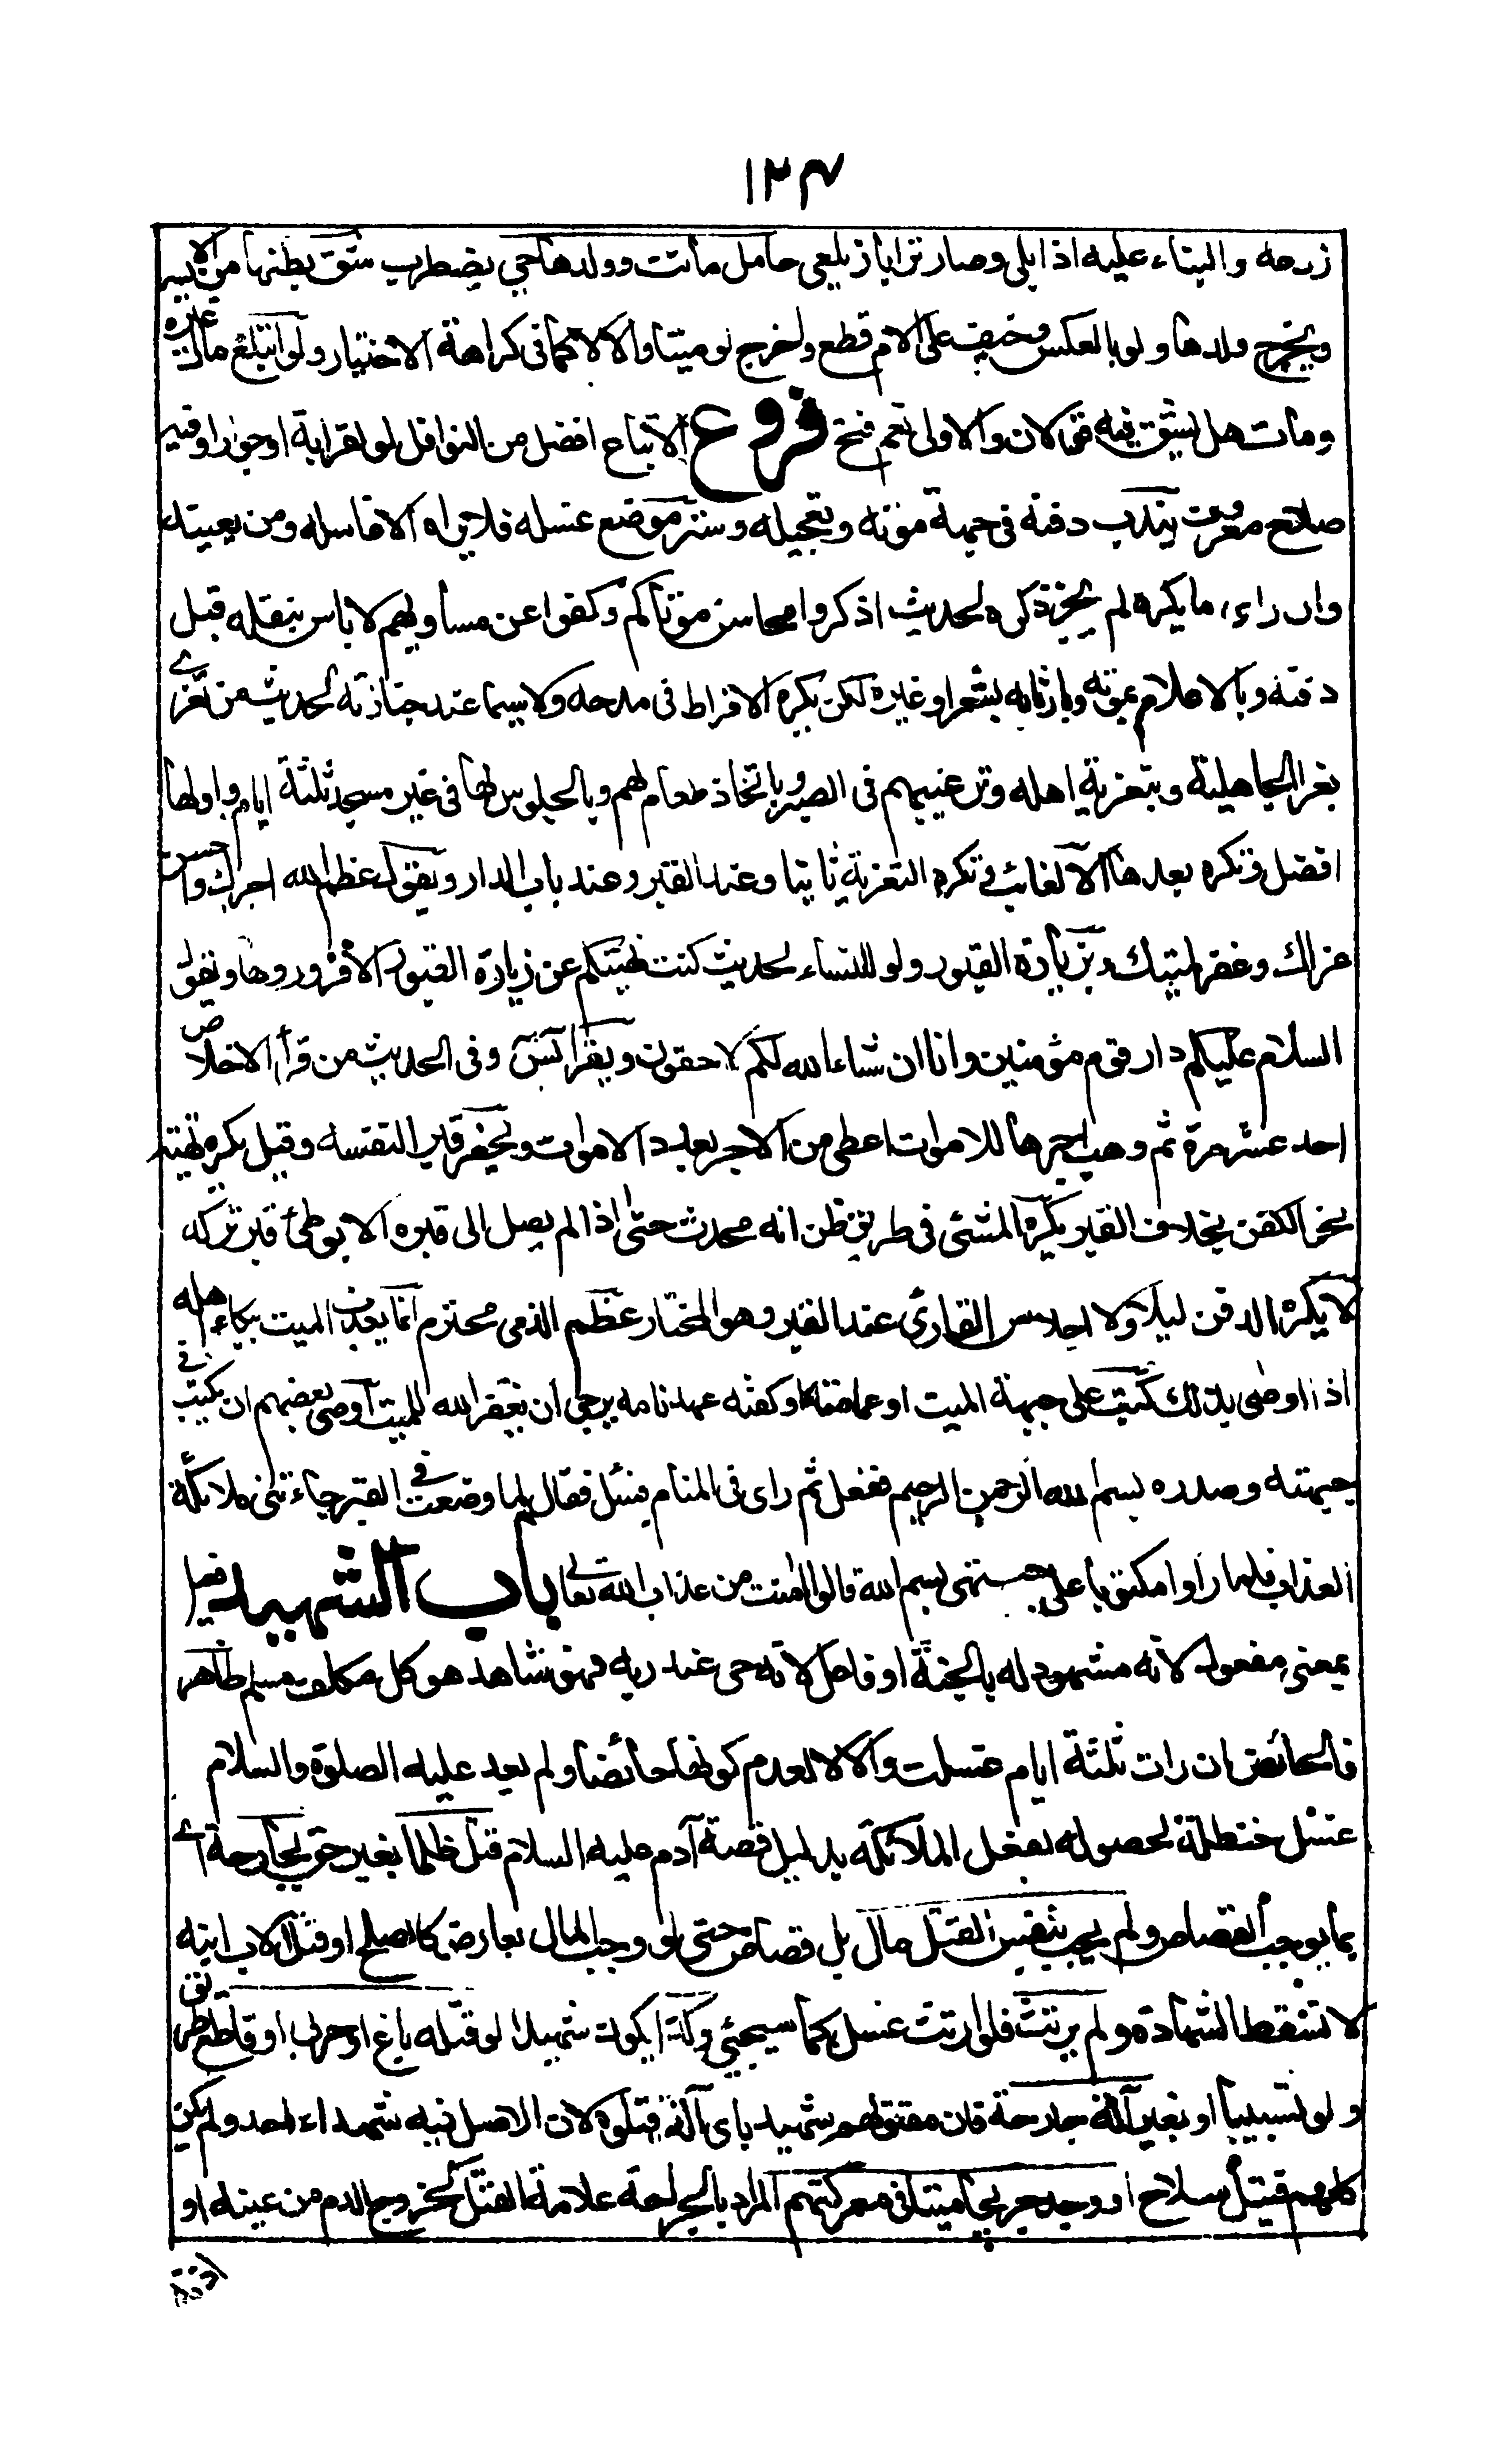 ١٢٤
زرعه والبناء عليه اذا بلى وصار ترابا زيلعى حامل ماتت وولدها حي يضطرب شق بطنها من الايسر
ويخرج ولدها ولو بالعكس وخيف على الام قطع واخرج لو ميتا والا لا كما فى كراهة الاختيار ولو ابتلع مال غيره
ومات هل يشق فيه قولان والاولى نعم فتح فروع الاتباع افضل من النوافل لو لقرابة او جوار او فيه
صلاح معروف يندب دفنه فى جهة موته وتعجيله وستر موضع غسله فلا يراه الا غاسله ومن يعينه
وان راى ما يكره لم يجز ذكره لحديث اذكروا محاسن موتاكم وكفوا عن مساويهم لا باس بنقله قبل
دفنه وبالاعلام بموته وبارثائه بشعر او غيره لكن يكره الافراط فى مدحه ولا سيما عند جنازته لحديث من تعزى
بعزا الجاهلية وبتعزية اهله وترغيبهم فى الصبر وباتخاذ طعام لهم وبالجلوس لها فى غير مسجد ثلثة ايام واولها
افضل وتكره بعدها الا لغائب وتكره التعزية ثانيا وعند القبر وعند باب الدار ويقول عظم الله اجرك واحسن
عزاك وغفر لميتك وبزيارة القبور ولو للنساء لحديث كنت نهيتكم عن زيارة القبور الا فزوروها ويقول
السلام عليكم دار قوم مؤمنين وانا ان شاء الله لكم لاحقون ويقرأ يس وفى الحديث من قرأ الاخلاص
احد عشر مرة ثم وهب اجرها للاموات اعطى من الاجر بعدد الاموات ويحفر قبرا لنفسه وقيل يكره تهيئة
نحو الكفن بخلاف القبر يكره المشى فى طريق ظن انه محدث حتى اذا لم يصل الى قبره الا بوطئ قبر تركه
لا يكره الدفن ليلا ولا اجلاس القارى عند القبر وهو المختار عظم الذمى محترم انما يعذب الميت ببكاء اهله
اذا اوصى بذلك كتب على جبهة الميت او عمامته او كفنه عهد نامه يرجى ان يغفر الله للميت اوصى بعضهم ان يكتب فى
جبهته وصدره بسم الله الرحمن الرحيم ففعل ثم راى فى المنام فسئل فقال لما وضعت فى القبر جاءتنى ملائكة
العذاب فلما راوا مكتوبا على جبهتى بسم الله قالوا امنت من عذاب الله تعالى باب الشهيد فعيل
بمعنى مفعول لانه مشهود له بالجنة او فاعل لانه حى عند ربه فهو شاهد هو كل مكلف مسلم طاهر
فالحائض ان رات ثلثة ايام غسلت والا لا لعدم كونها حائضا ولم يعد عليه الصلوة والسلام
غسل حنظلة لحصوله بفعل الملائكة بدليل قصة آدم عليه السلام قتل ظلما بغير حق بجارحة اى
بما يوجب القصاص ولم يجب بنفس القتل مال بل قصاص حتى لو وجب المال بعارض كالصلح او قتل الاب ابنه
لا تسقط الشهادة ولم يرتث فلو ارتث غسل كما سيجئ وكذا يكون شهيدا لو قتله باغ او حربى او قاطع طريق
ولو تسبيبا او بغير آلة جارحة فان مقتولهم شهيد باى آلة قتلوه لان الاصل فيه شهداء احد ولم يكن
كلهم قتيل سلاح او وجد جريحا ميتا فى معركتهم المراد بالجراحة علامة القتل كخروج الدم من عينه او
اذنه